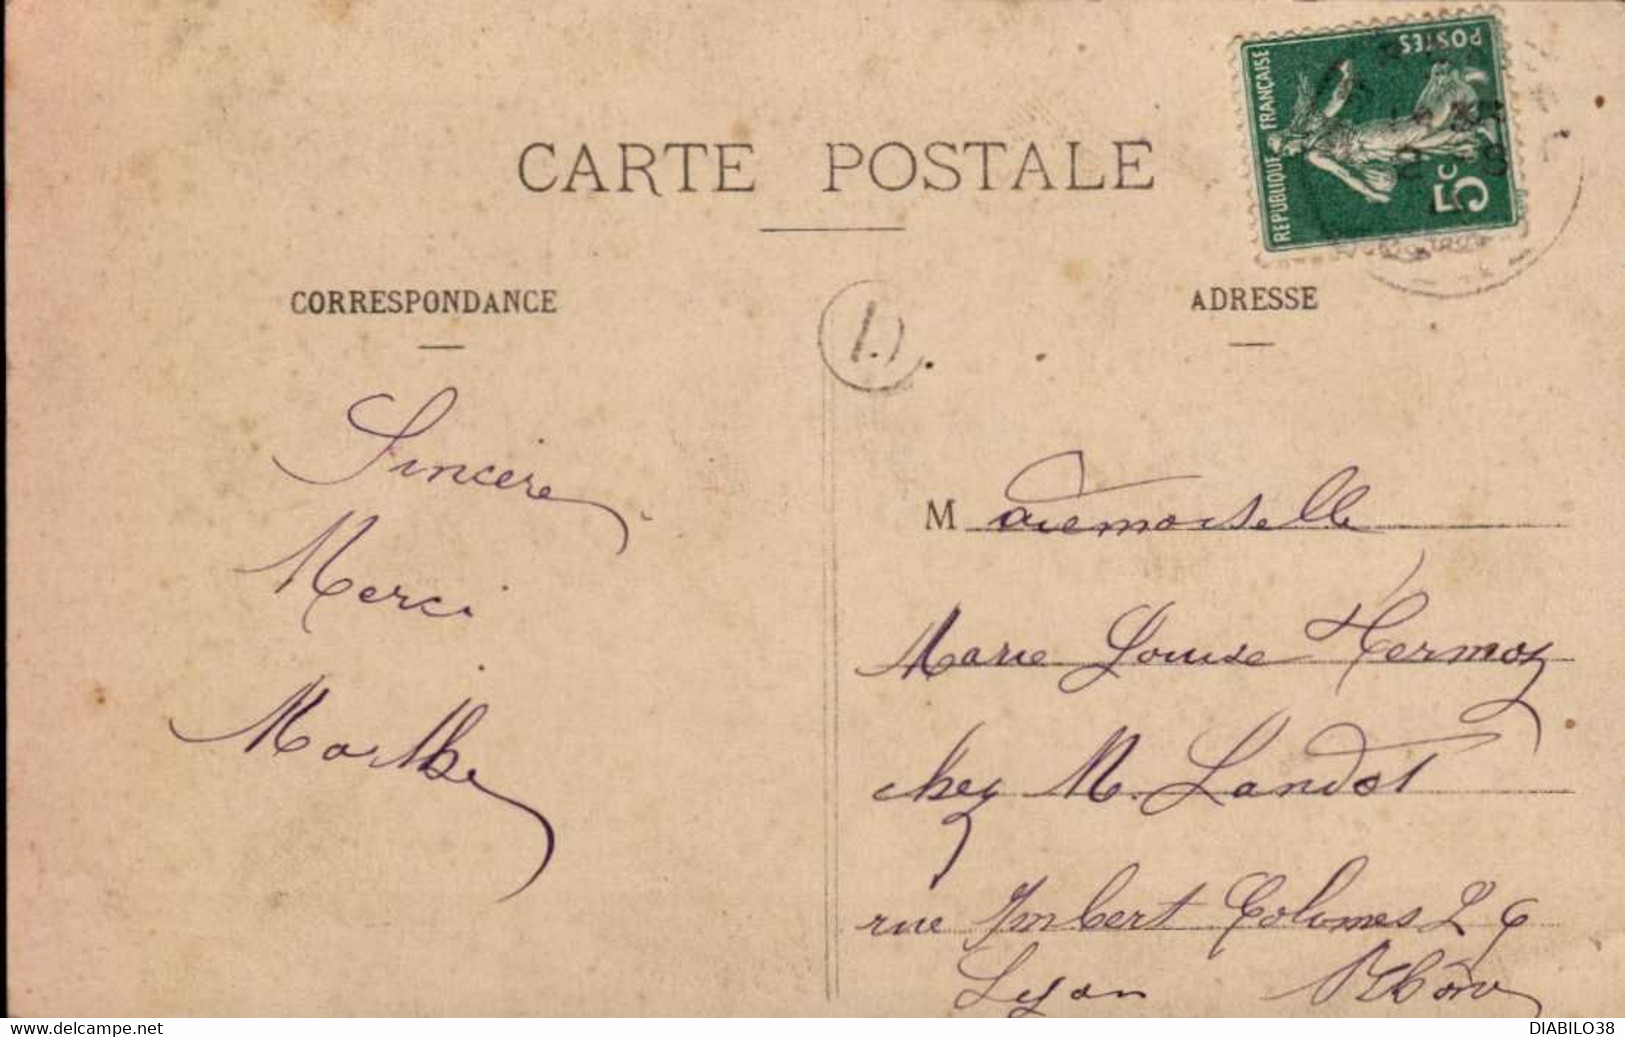 CARTE POSTALE
REPUBLIQUE FRANÇAISE
POSTES
5c
CORRESPONDANCE
ADRESSE
Sincère
Merci
Marthe
Mademoiselle
Marie Louise Hermoz
chez M. Landot
rue Imbert Colomes 26
Lyon Rhône
DIABILO38